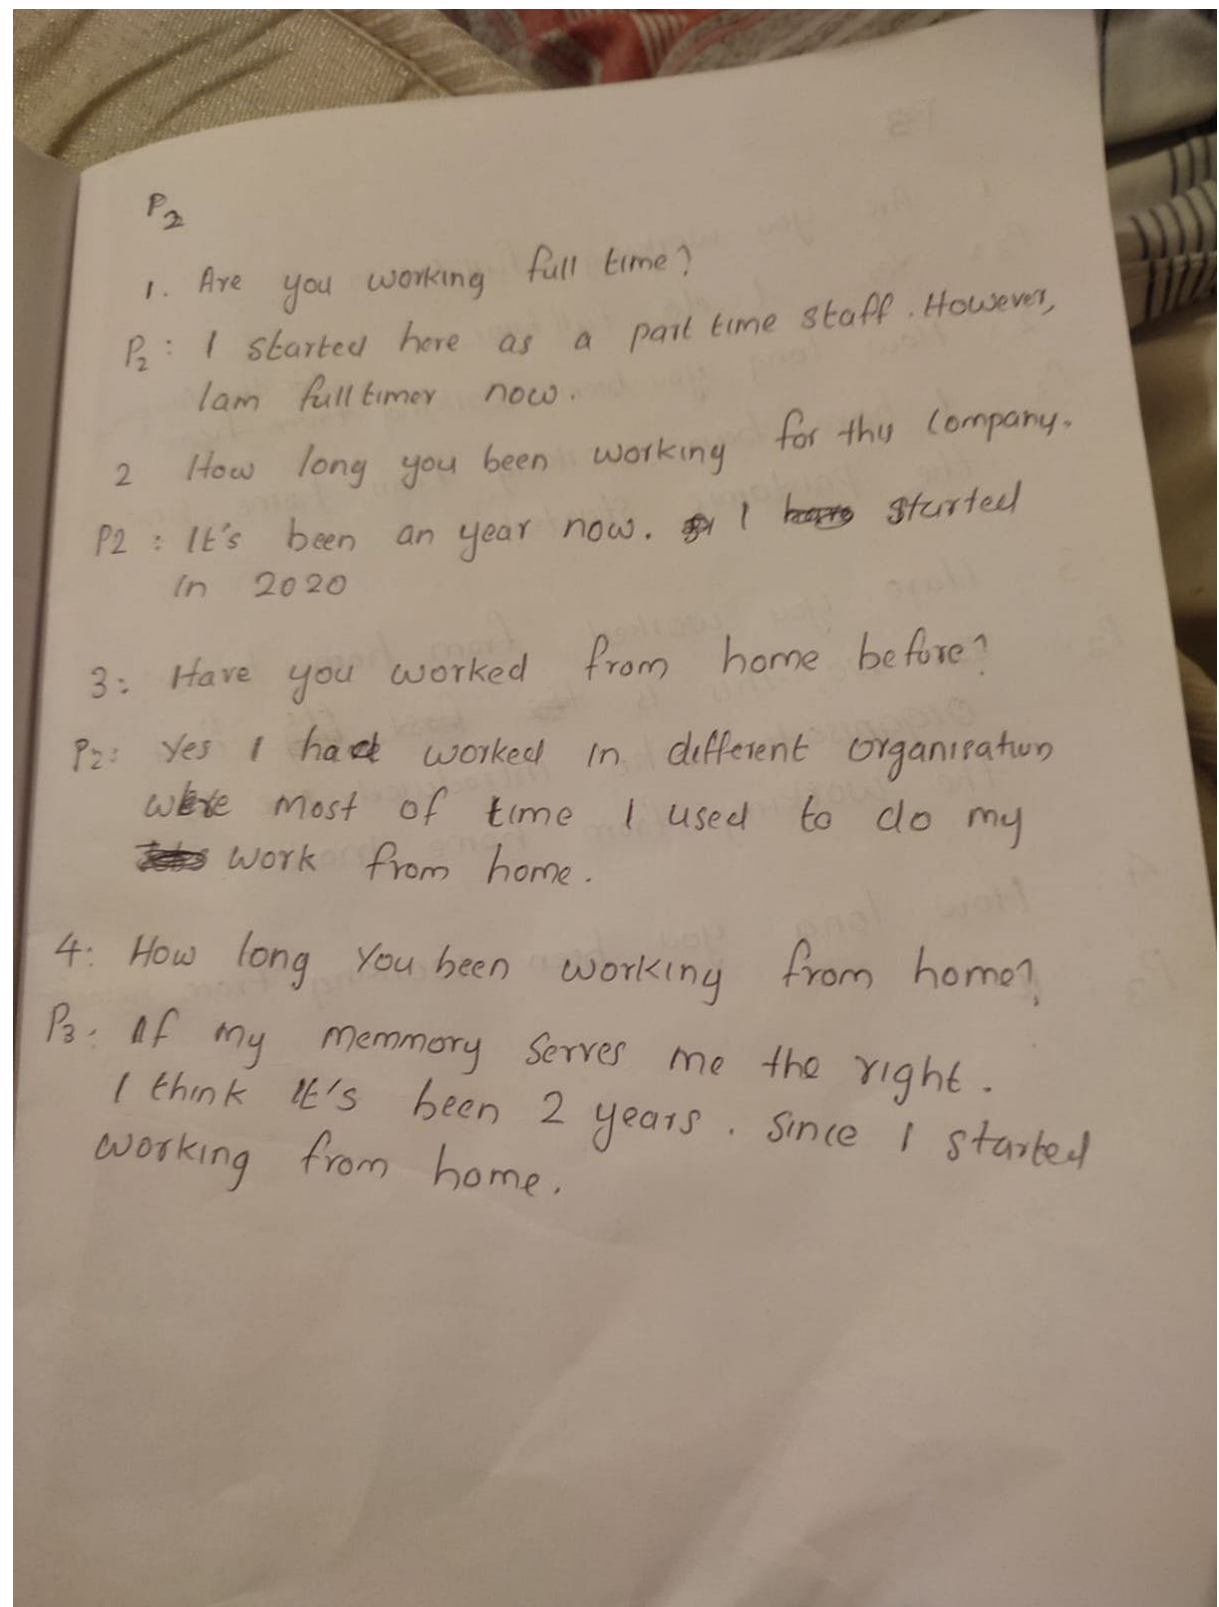 P2
1. Are you working full time?
P2 : I started here as a part time staff. However,
I am full timer now.
2 How long you been working for this company.
P2 : It's been an year now. I started
in 2020
3: Have you worked from home before?
P2: Yes I had worked in different organisation
were most of time I used to do my
work from home.
4: How long you been working from home?
P3: If my memmory serves me the right.
I think it's been 2 years. since I started
working from home.